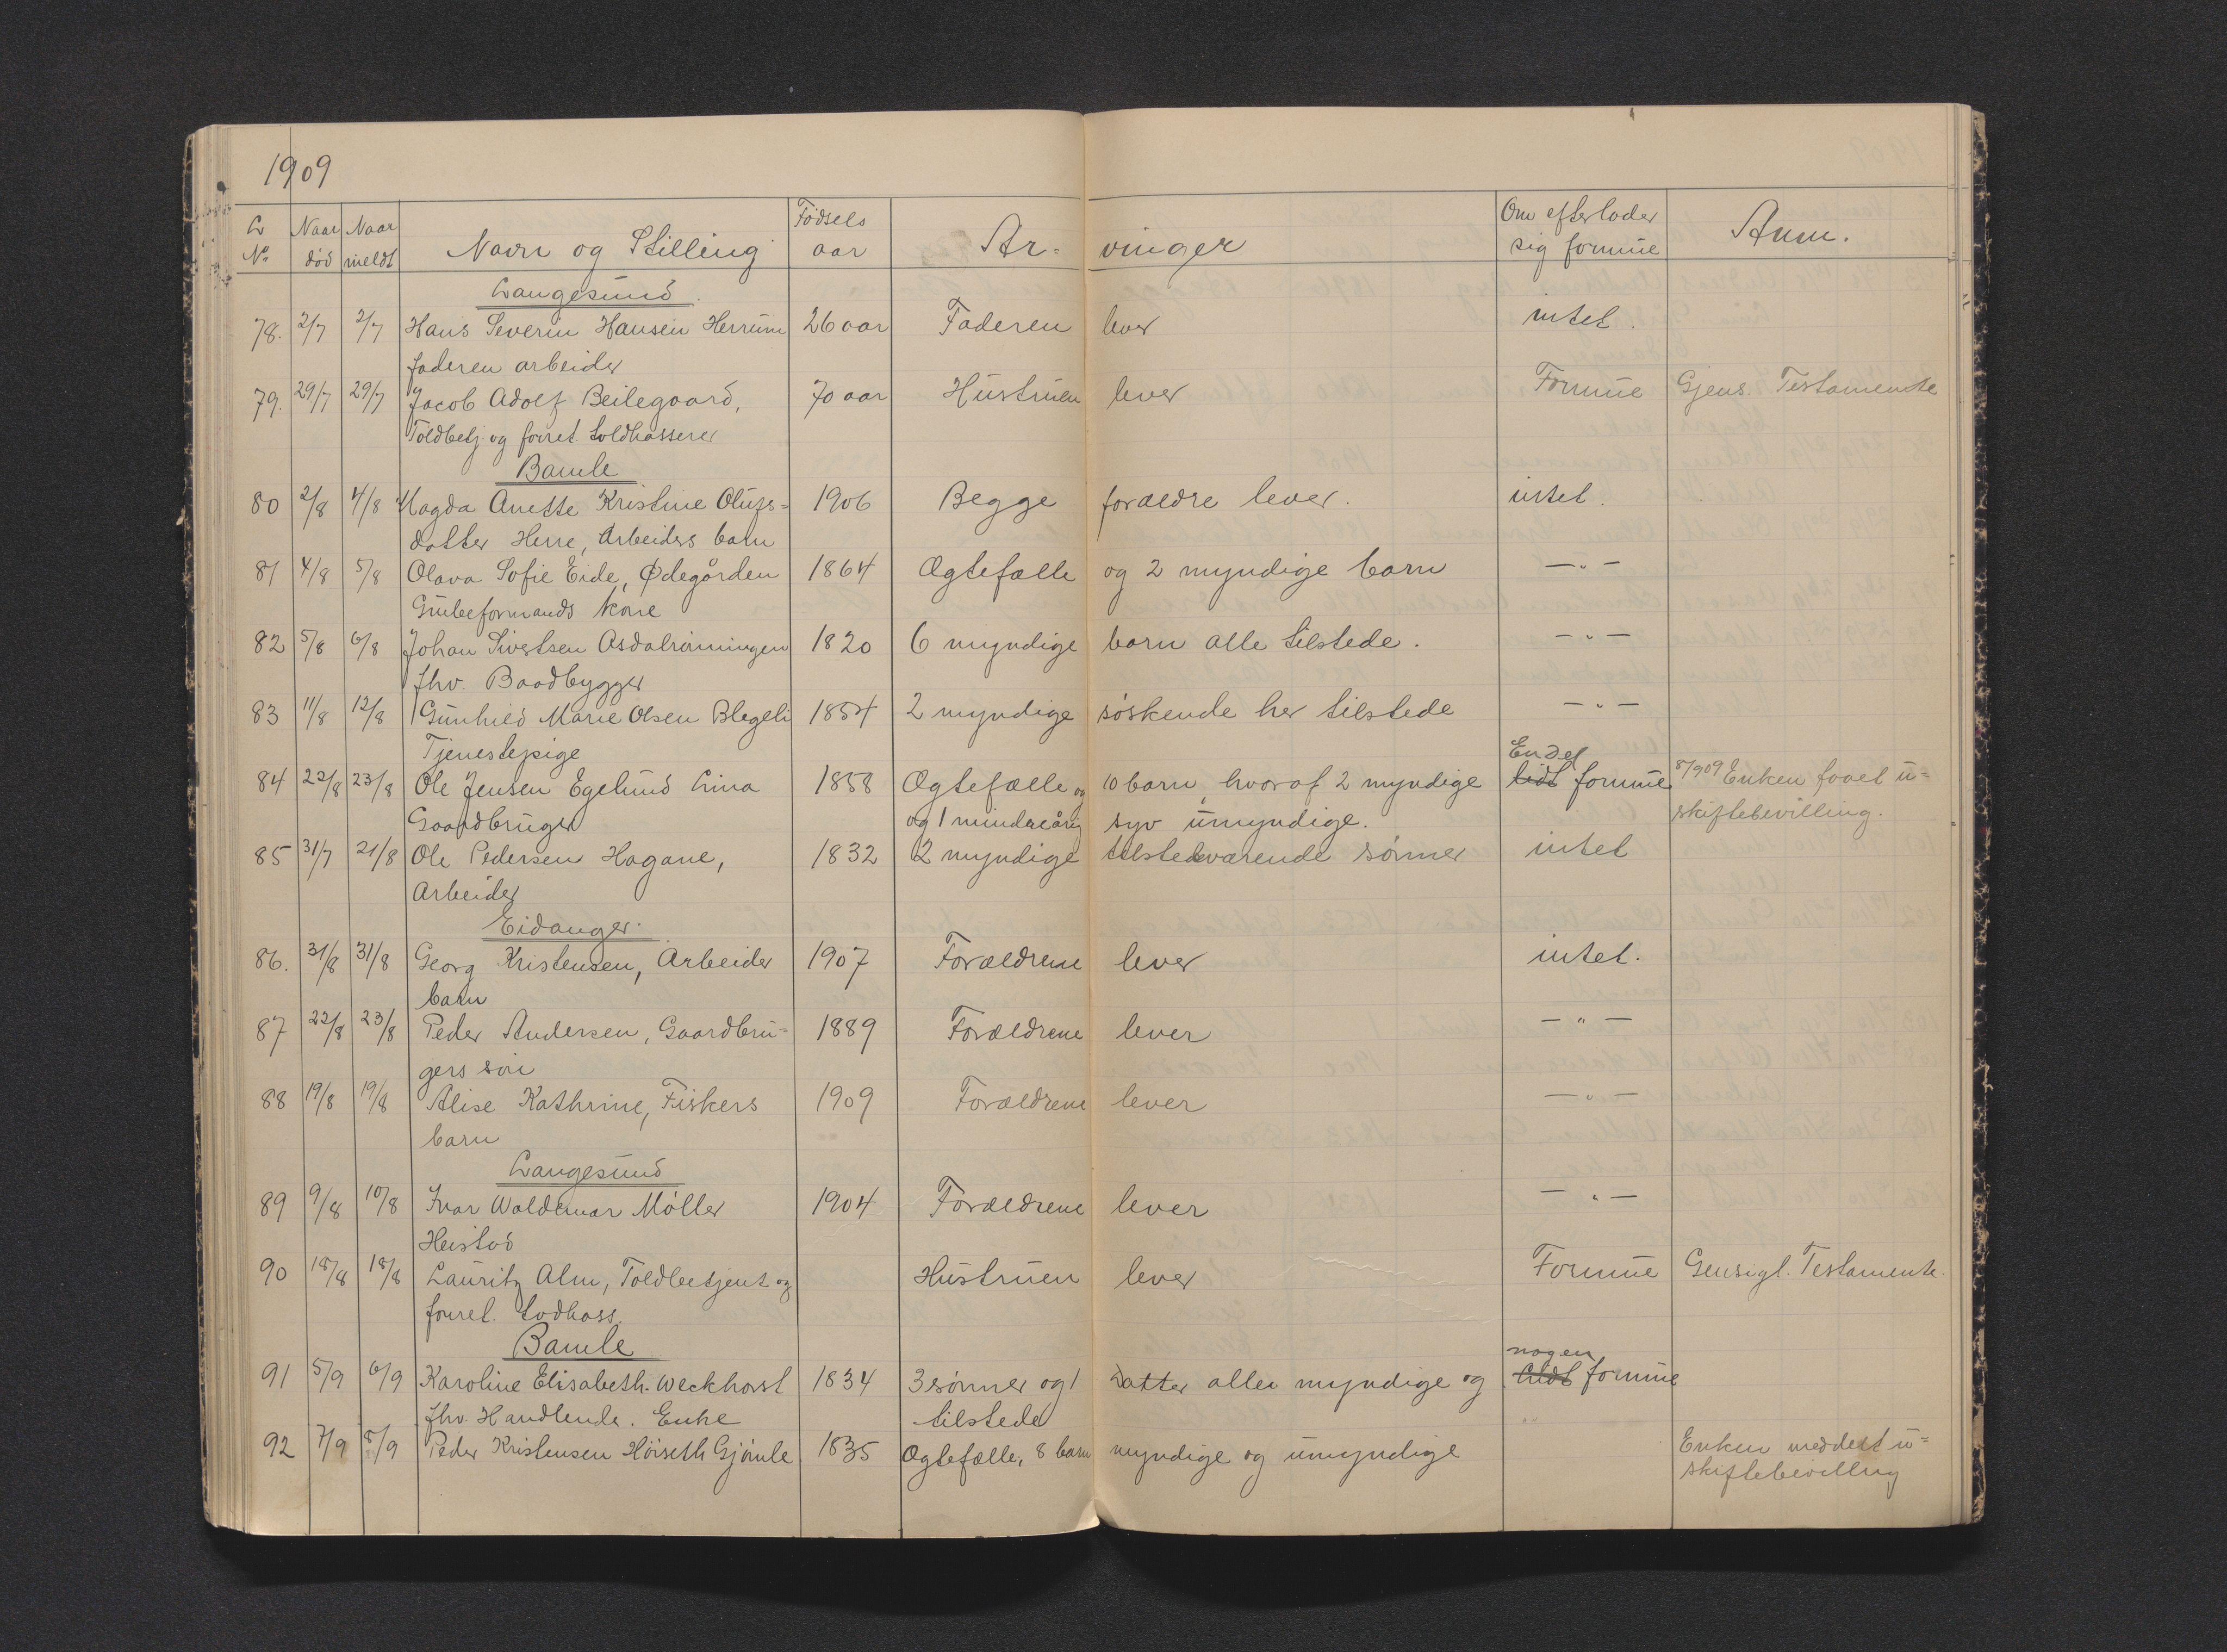 1909
L Naar Naar Navn og Stilling Fødsels Ar- vinger Om efterlader Anm.
No død meldt aar sig formue
Langesund
78. 2/7 2/7 Hans Severin Hansen Herrum 26 aar Faderen lever intet.
faderen arbeider
79. 29/7 29/7 Jacob Adolf Beilegaard, 70 aar Hustruen lever Formue Gjens. Testamente
Toldbetj. og forret. Toldkasserer
Bamle
80 2/8 4/8 Magda Anette Kristine Olufs- 1906 Begge forældre lever. intet.
datter Herre, Arbeiders barn
81 4/8 5/8 Olava Sofie Eide, Ødegården 1864 Ægtefælle og 2 myndige barn —„—
Grubeformands kone
82 5/8 6/8 Johan Sivertsen Asdalrønningen 1820 6 myndige barn alle tilstede. —„—
fhv. Baadbygger
83 11/8 12/8 Gunhild Marie Olsen Blegeli 1854 2 myndige søskende her tilstede —„—
Tjenestepige
84 22/8 23/8 Ole Jensen Egelund Lina 1858 Ægtefælle og 10 barn, hvoraf 2 myndige Endel lidt formue 8/9 09 Enken faaet u-
Gaardbruger og 1 mindreårig syv umyndige. skiftebevilling.
85 31/7 21/8 Ole Pedersen Hagane, 1832 2 myndige tilstedeværende sønner intet
Arbeider
Eidanger.
86. 31/8 31/8 Georg Kristensen, Arbeider 1907 Forældrene lever intet.
barn
87 22/8 23/8 Peder Andersen, Gaardbru- 1889 Forældrene lever —„—
gers søn
88 19/8 19/8 Alise Kathrine, Fiskers 1909 Forældrene lever —„—
barn
Langesund
89 9/8 10/8 Ivar Waldemar Møller 1904 Forældrene lever —„—
Heistad
90 18/8 18/8 Lauritz Alm, Toldbetjent og Hustruen lever Formue Gensigt. Testamente.
forret. Lodkass.
Bamle
91 5/9 6/9 Karoline Elisabeth Weckhorst 1834 3 sønner og 1 datter aller myndige og nogen lidt formue
fhv. Handlende. Enke tilstede
92 7/9 8/9 Peder Kristensen Høiseth Gjømle 1835 Ægtefælle, 8 barn myndige og umyndige Enken meddelt u-
skiftebevilling